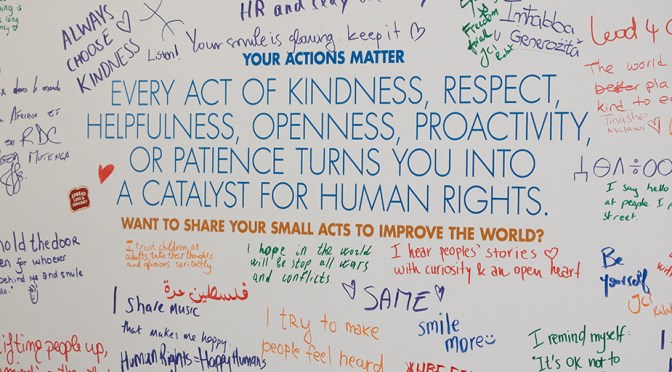 HR and
ALWAYS
CHOOSE
KINDNESS
Listen!
Your smile is glowing keep it ♡
Freedom
JCI
Imħabba
u Generożità
Lead 4
YOUR ACTIONS MATTER
EVERY ACT OF KINDNESS, RESPECT,
HELPFULNESS, OPENNESS, PROACTIVITY,
OR PATIENCE TURNS YOU INTO
A CATALYST FOR HUMAN RIGHTS.
WANT TO SHARE YOUR SMALL ACTS TO IMPROVE THE WORLD?
dans le monde
RDC
MUTENGA
The world
better
kind to
Tinashe
I say hello
at people I
street.
hold the door
for whoever
behind me and smile
I trust children as
adults, take their thoughts
and opinions seriously
فلسطين حرة
I share music
that makes me happy
Human Rights = Happy Humans
I hope in the world
will be stop all wars
and conflicts
I hear peoples' stories ♡
with curiosity & an open heart
♡ SAME ♡
smile
more
Be
yourself
JCI
I try to make
people feel heard
I remind myself:
"It's OK not to
lifting people up,